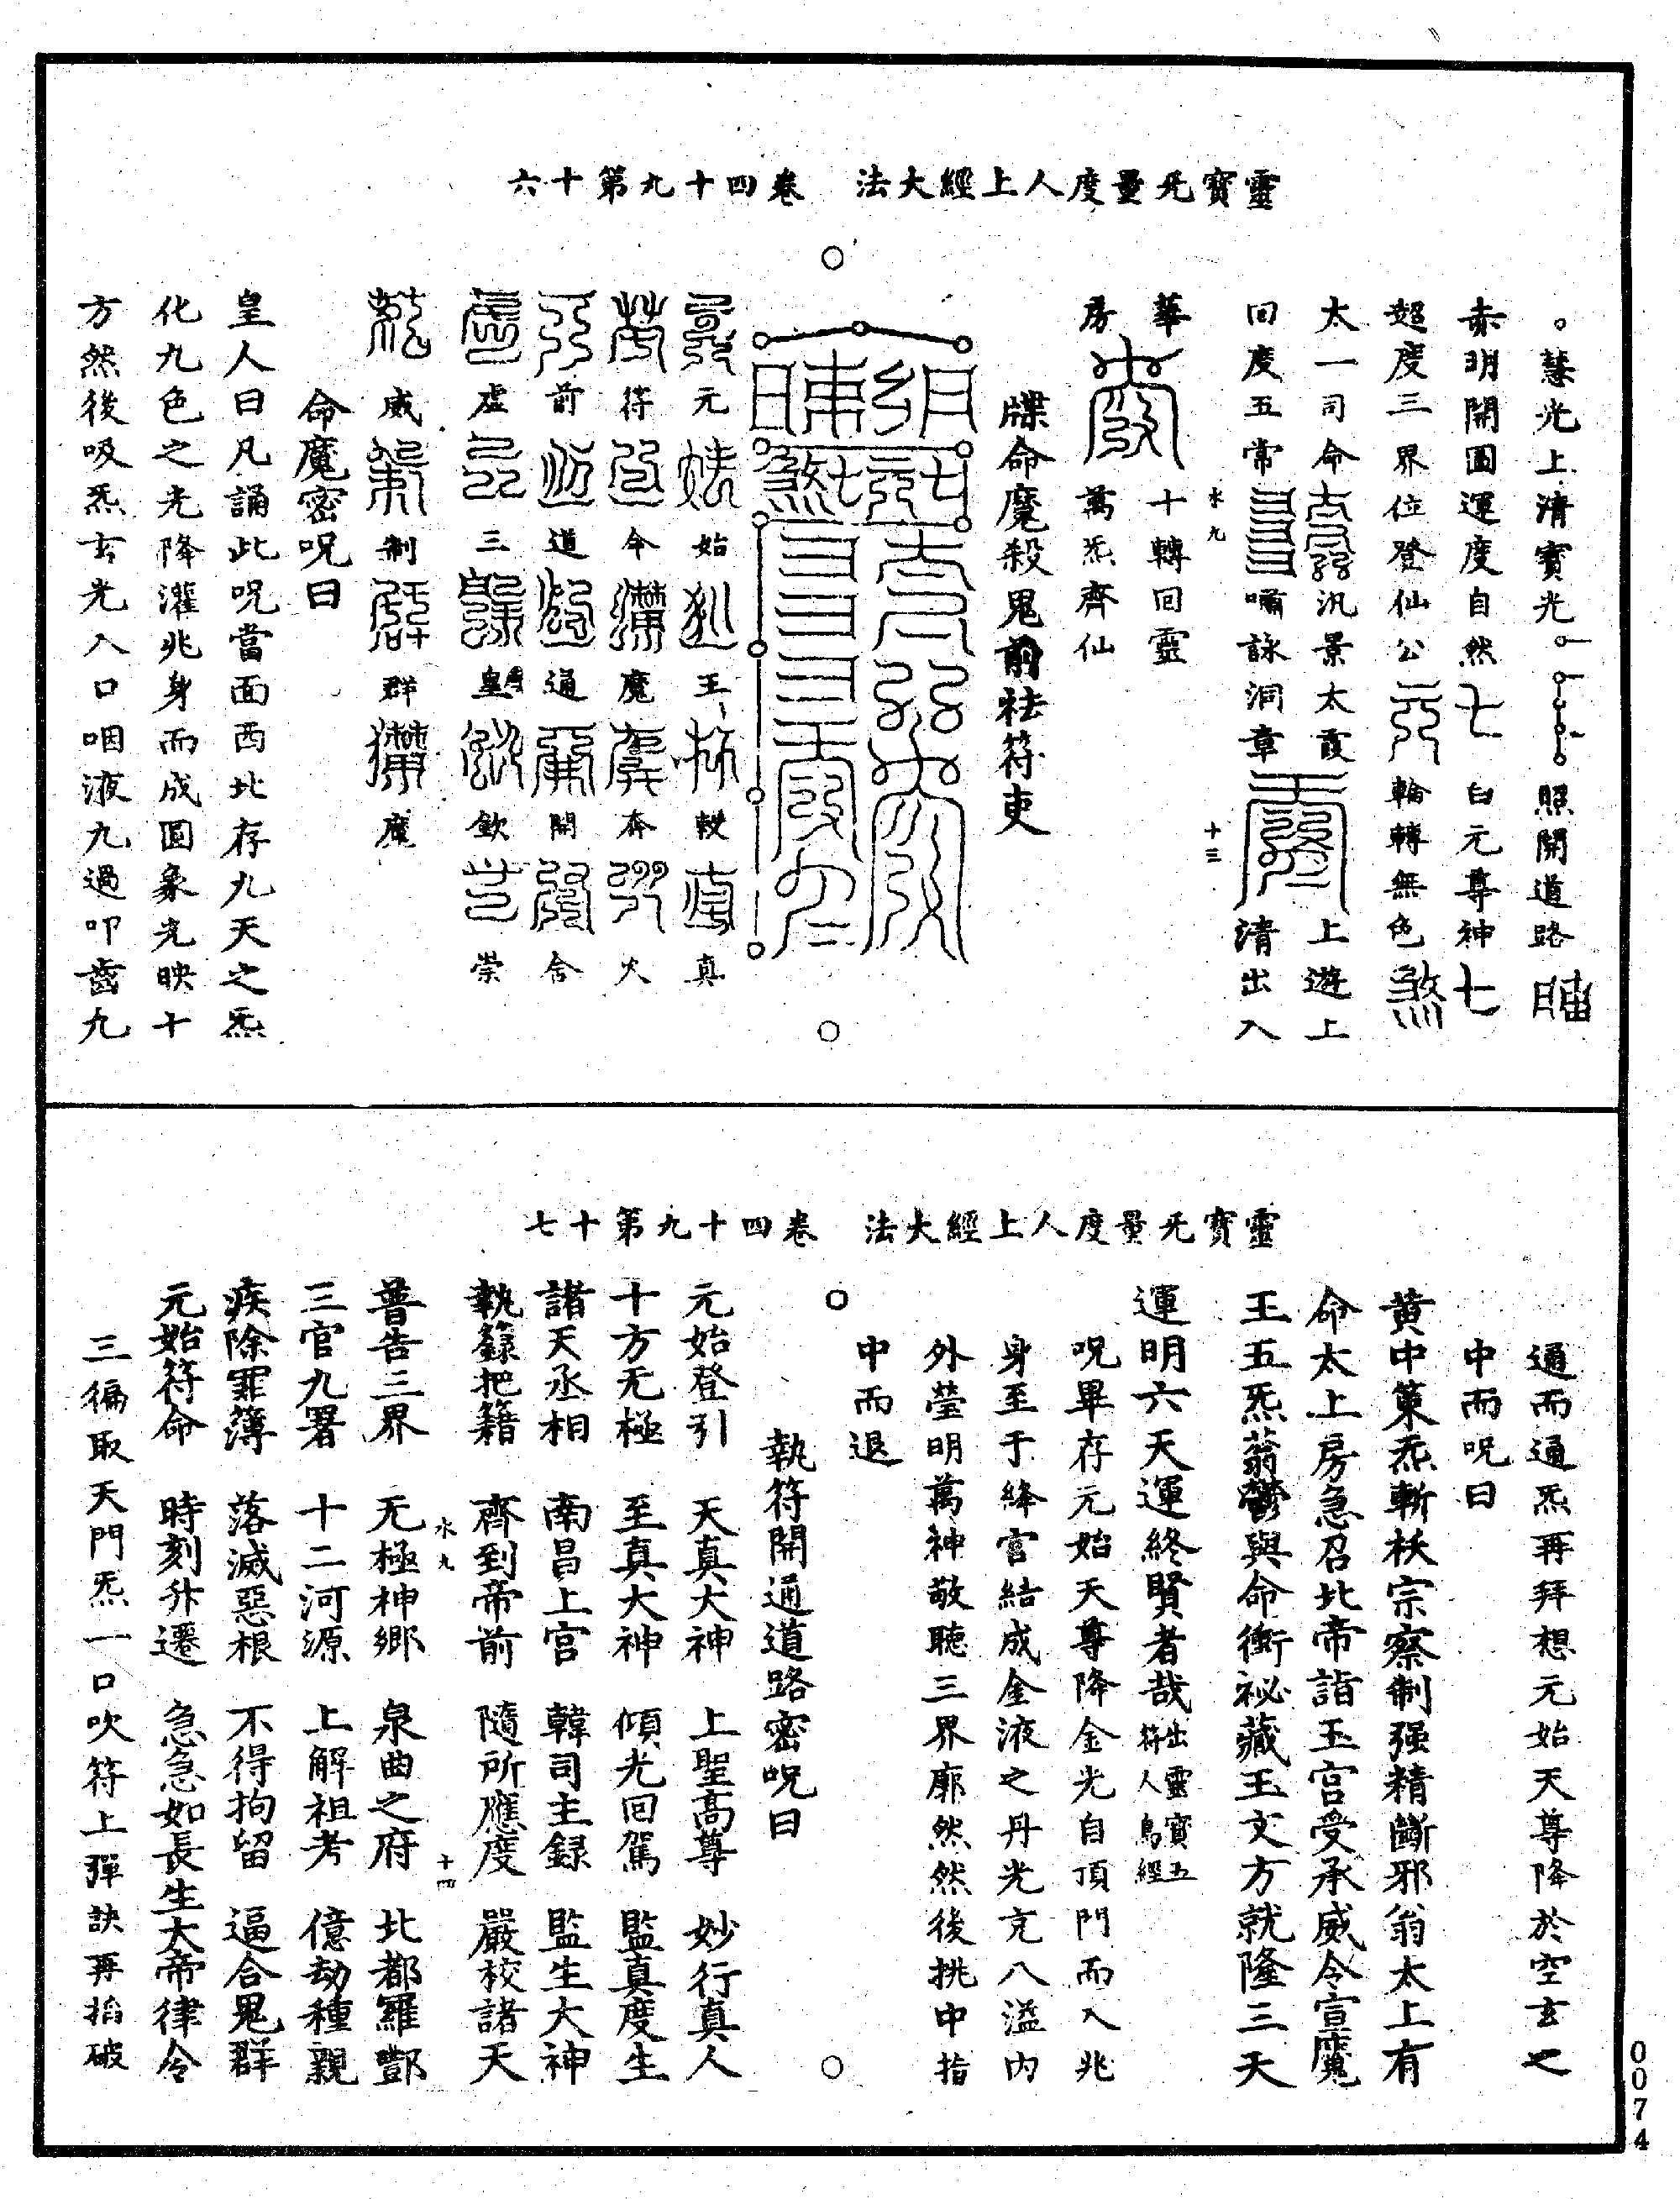 靈寶无量度人上經大法　卷四十九第十六
慧光上清寶光
照開道路
赤明開圖運度自然
白元尊神
超度三界位登仙公
輪轉無色
太一司命
汎景太霞
上遊上
回度五常
嘯詠洞章
清出入
水九
十三
華
十轉回靈
房
萬炁齊仙
牒命魔殺鬼前祛符吏
元始王校真
符命魔奔火
前道通開舍
虛三皇欽崇
威制群魔
命魔密呪曰
皇人曰凡誦此呪當面西北存九天之炁
化九色之光降灌兆身而成圓象光映十
方然後吸炁玄光入口咽液九過叩齒九
靈寶无量度人上經大法　卷四十九第十七
通而通炁再拜想元始天尊降於空玄之
中而呪曰
黃中策炁斬妖宗察制强精斷邪翁太上有
命太上房急召北帝詣玉宮受承威令宣魔
王五炁蓊鬱與命衝祕藏玉文方就隆三天
運明六天運終賢者哉出靈寶五符人鳥經
呪畢存元始天尊降金光自頂門而入兆
身至于絳宮結成金液之丹光充八溢內
外瑩明萬神敬聽三界廓然然後挑中指
中而退
執符開通道路密呪曰
元始登引　天真大神　上聖高尊　妙行真人
十方无極　至真大神　傾光回駕　監真度生
諸天丞相　南昌上宮　韓司主録　監生大神
執籙把籍　齊到帝前　隨所應度　嚴校諸天
水九
十四
普告三界　无極神鄉　泉曲之府　北都羅酆
三官九署　十二河源　上解祖考　億劫種親
疾除罪簿　落滅惡根　不得拘留　逼合鬼群
元始符命　時刻升遷　急急如長生大帝律令
三徧取天門炁一口吹符上彈訣再掐破
0074